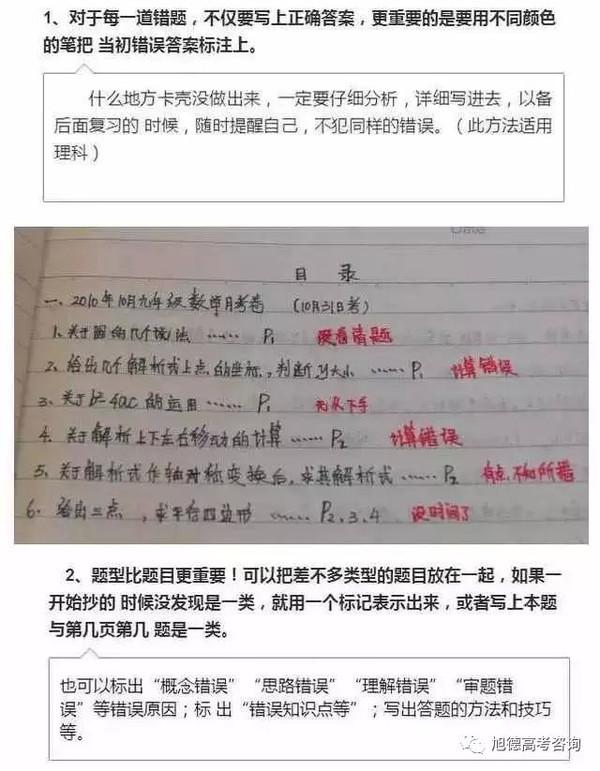 1、对于每一道错题，不仅要写上正确答案，更重要的是要用不同颜色
的笔把 当初错误答案标注上。
什么地方卡壳没做出来，一定要仔细分析，详细写进去，以备
后面复习的 时候，随时提醒自己，不犯同样的错误。（此方法适用
理科）
Date
目 录
一、2010年10月九年级数学月考卷 （10月31日考）
1、关于圆的几个说法 …… P1 没看清题
2、给出几个解析式上点的坐标，判断y大小 …… P1 计算错误
3、关于b²-4ac的运用 …… P1 无从下手
4、关于解析上下左右移动的计算 …… P2 计算错误
5、关于解析式作轴对称变换后，求其解析式 …… P2 有点不知所措
6、给出三点，求平行四边形 …… P2、3、4 没时间了
2、题型比题目更重要！可以把差不多类型的题目放在一起，如果一
开始抄的 时候没发现是一类，就用一个标记表示出来，或者写上本题
与第几页第几 题是一类。
也可以标出“概念错误”“思路错误”“理解错误”“审题错
误”等错误原因；标 出“错误知识点等”；写出答题的方法和技巧
等。
旭德高考咨询